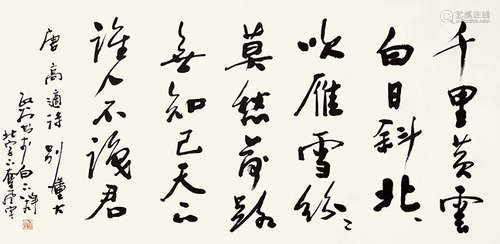 千里黄雲
白日斜北、
吹雁雪紛〻
莫愁前路
無知己天下
誰人不識君
唐高適詩別董大